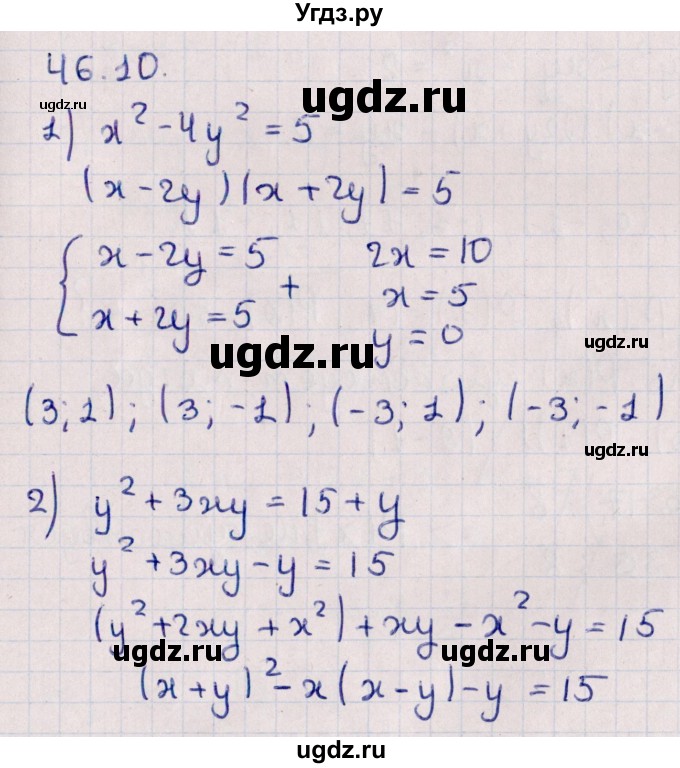 Угдз.ру
46.10.
ugdz.ru
ugdz.ru
1) x² - 4y² = 5
(x - 2y)(x + 2y) = 5
{ x - 2y = 5      2x = 10
+ x = 5
x + 2y = 5
ugdz.ru
ugdz.ru
y = 0
(3; 1); (3; -1); (-3; 1); (-3; -1)
ugdz.ru
2) y² + 3xy = 15 + y
y² + 3xy - y = 15
(y² + 2xy + x²) + xy - x² - y = 15
ugdz.ru
ugdz.ru
(x + y)² - x(x - y) - y = 15
ugdz.ru